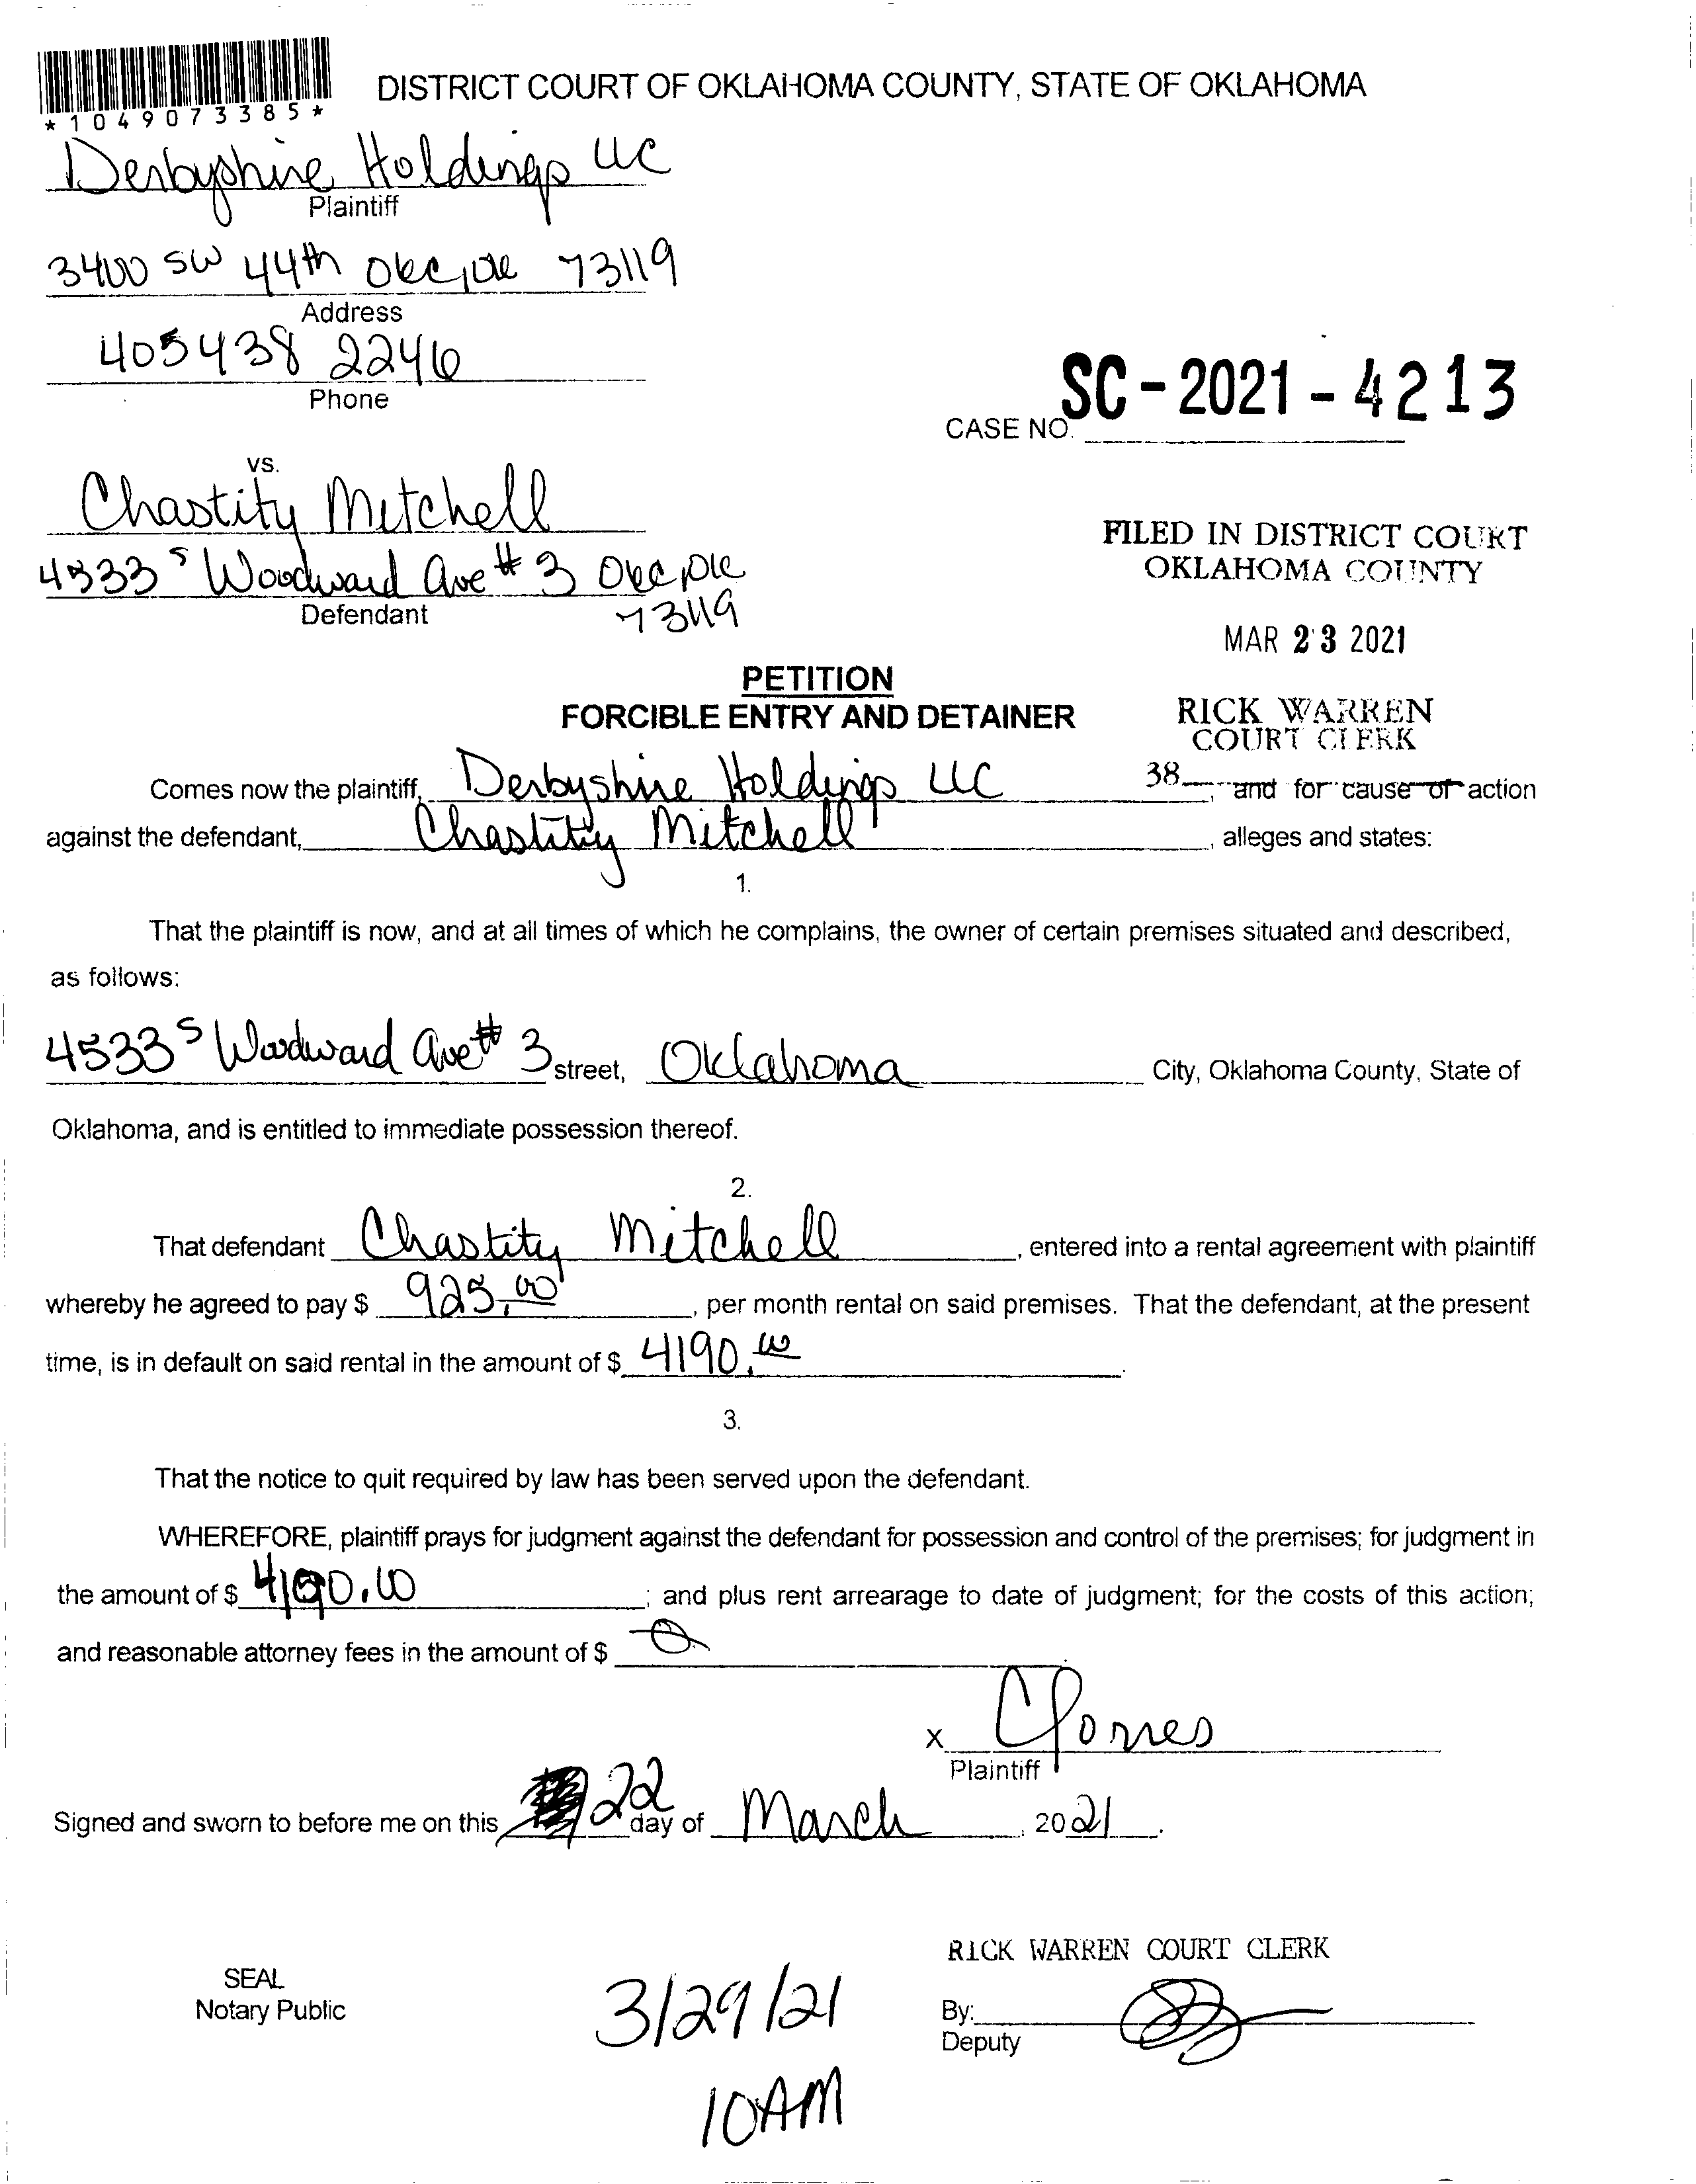 *1049073385*
DISTRICT COURT OF OKLAHOMA COUNTY, STATE OF OKLAHOMA
Derbyshire Holdings LLC
Plaintiff
3400 SW 44th OKC, OK 73119
Address
405 438 2246
Phone
SC-2021-4213
CASE NO.
vs.
Chastity Mitchell
4533 S Woodward Ave # 3 OKC, OK
73119
Defendant
FILED IN DISTRICT COURT
OKLAHOMA COUNTY
MAR 23 2021
RICK WARREN
COURT CLERK
38
PETITION
FORCIBLE ENTRY AND DETAINER
Comes now the plaintiff, Derbyshire Holdings LLC, and for cause of action
against the defendant, Chastity Mitchell, alleges and states:
1.
That the plaintiff is now, and at all times of which he complains, the owner of certain premises situated and described,
as follows:
4533 S Woodward Ave # 3 street, Oklahoma City, Oklahoma County, State of
Oklahoma, and is entitled to immediate possession thereof.
2.
That defendant Chastity Mitchell, entered into a rental agreement with plaintiff
whereby he agreed to pay $ 925.00, per month rental on said premises. That the defendant, at the present
time, is in default on said rental in the amount of $ 4190.00.
3.
That the notice to quit required by law has been served upon the defendant.
WHEREFORE, plaintiff prays for judgment against the defendant for possession and control of the premises; for judgment in
the amount of $ 4190.00; and plus rent arrearage to date of judgment; for the costs of this action;
and reasonable attorney fees in the amount of $ 0.
x
Plaintiff
Signed and sworn to before me on this 22 day of March, 2021.
RICK WARREN COURT CLERK
SEAL
Notary Public
3/29/21
10AM
By:
Deputy